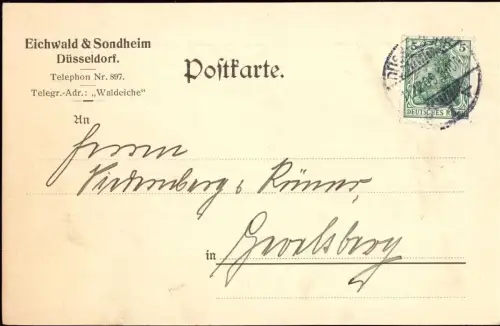 Eichwald & Sondheim
Düsseldorf.
Telephon Nr. 897.
Telegr.-Adr.: „Waldeiche"
Postkarte.
5 5
DEUTSCHES REICH
An
Herren
& Römer,
in Gevelsberg